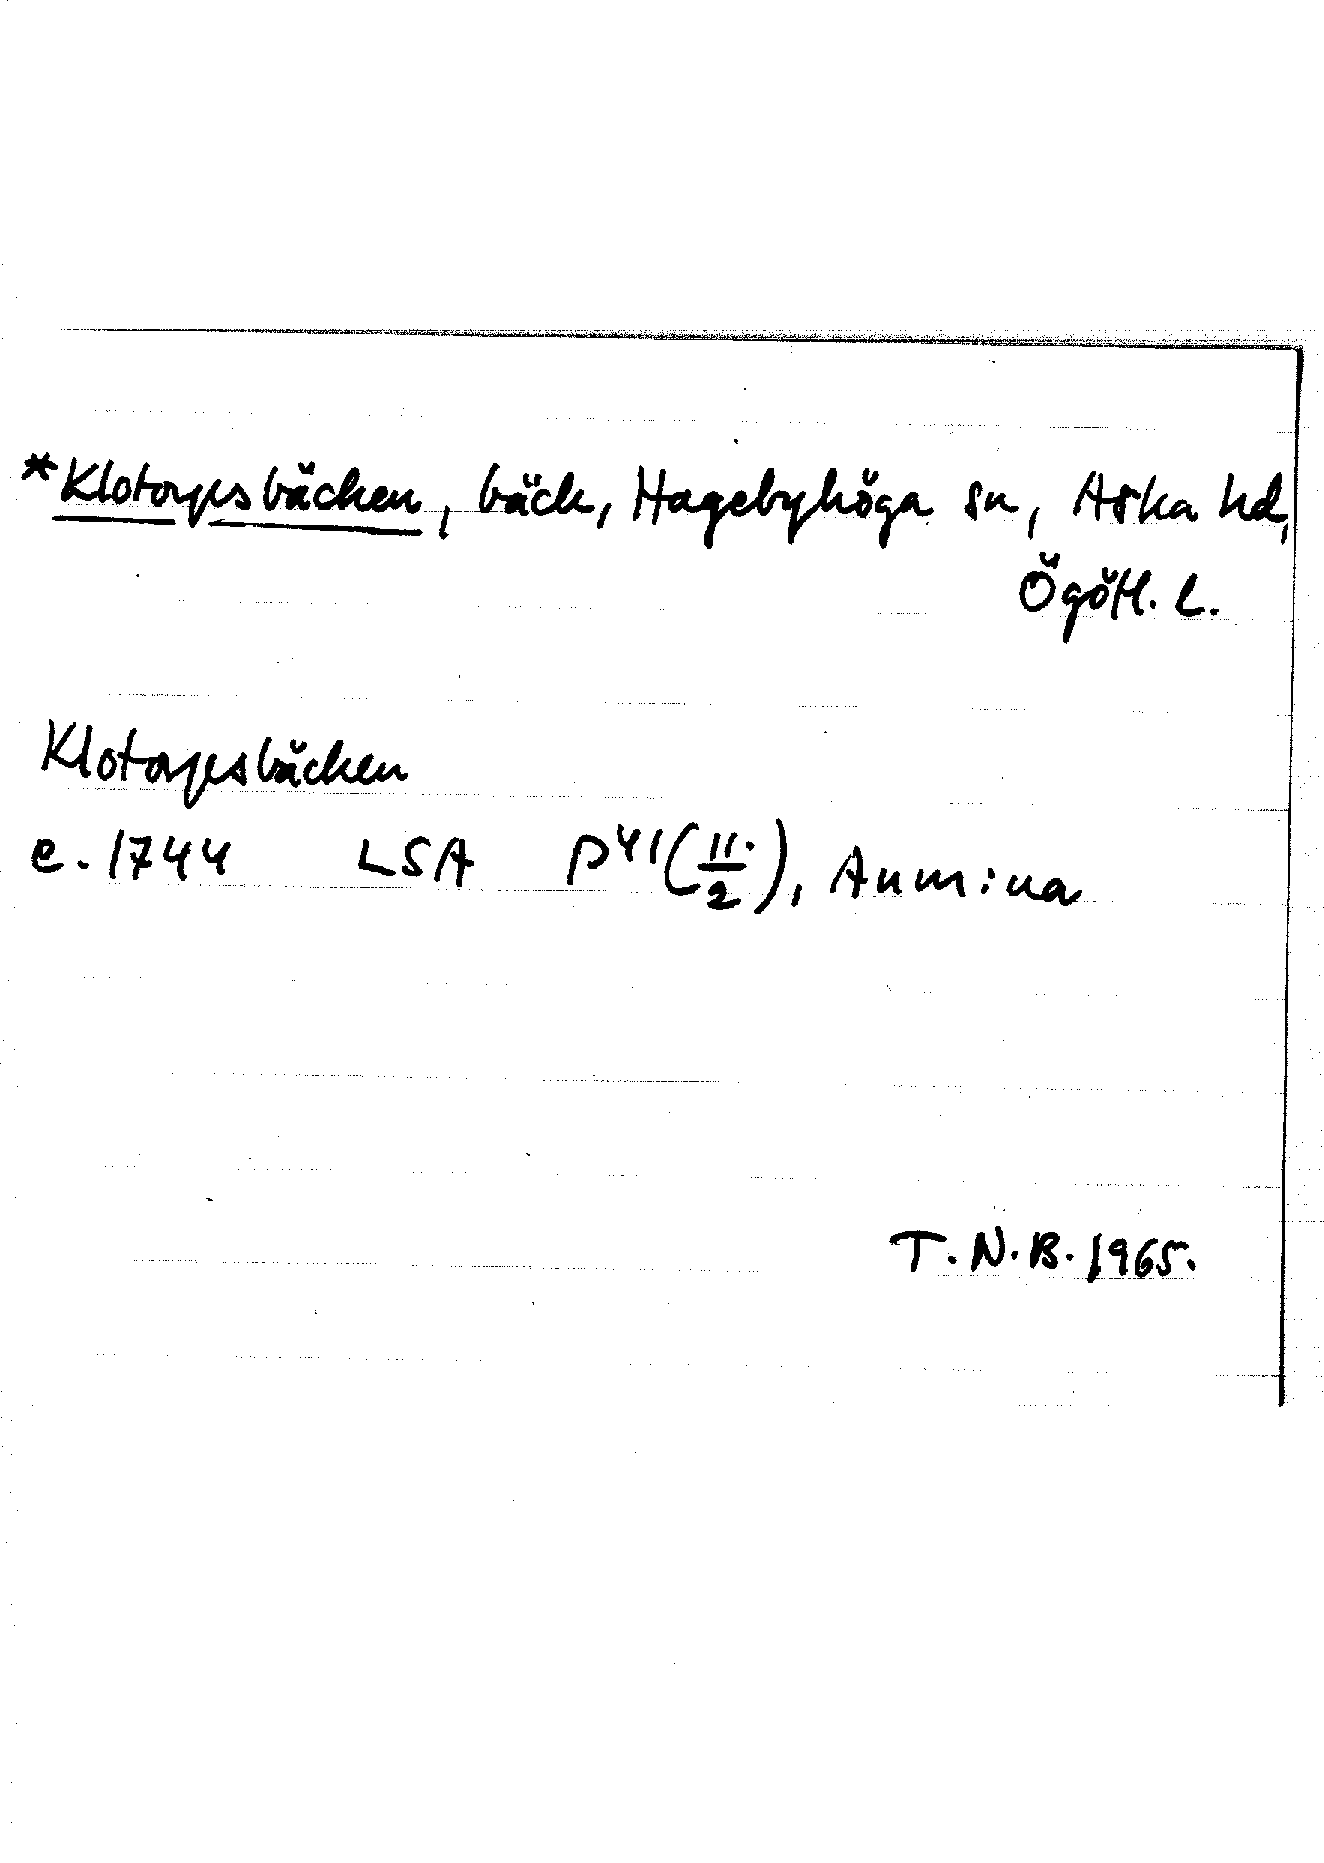 *Klotorpsbäcken, bäck, Hagebyhöga sn, Aska hd,
Ögötl. l.
Klotorpsbäcken
c. 1744 LSA P41(11./2), Anm:na
T.N.B. 1965.